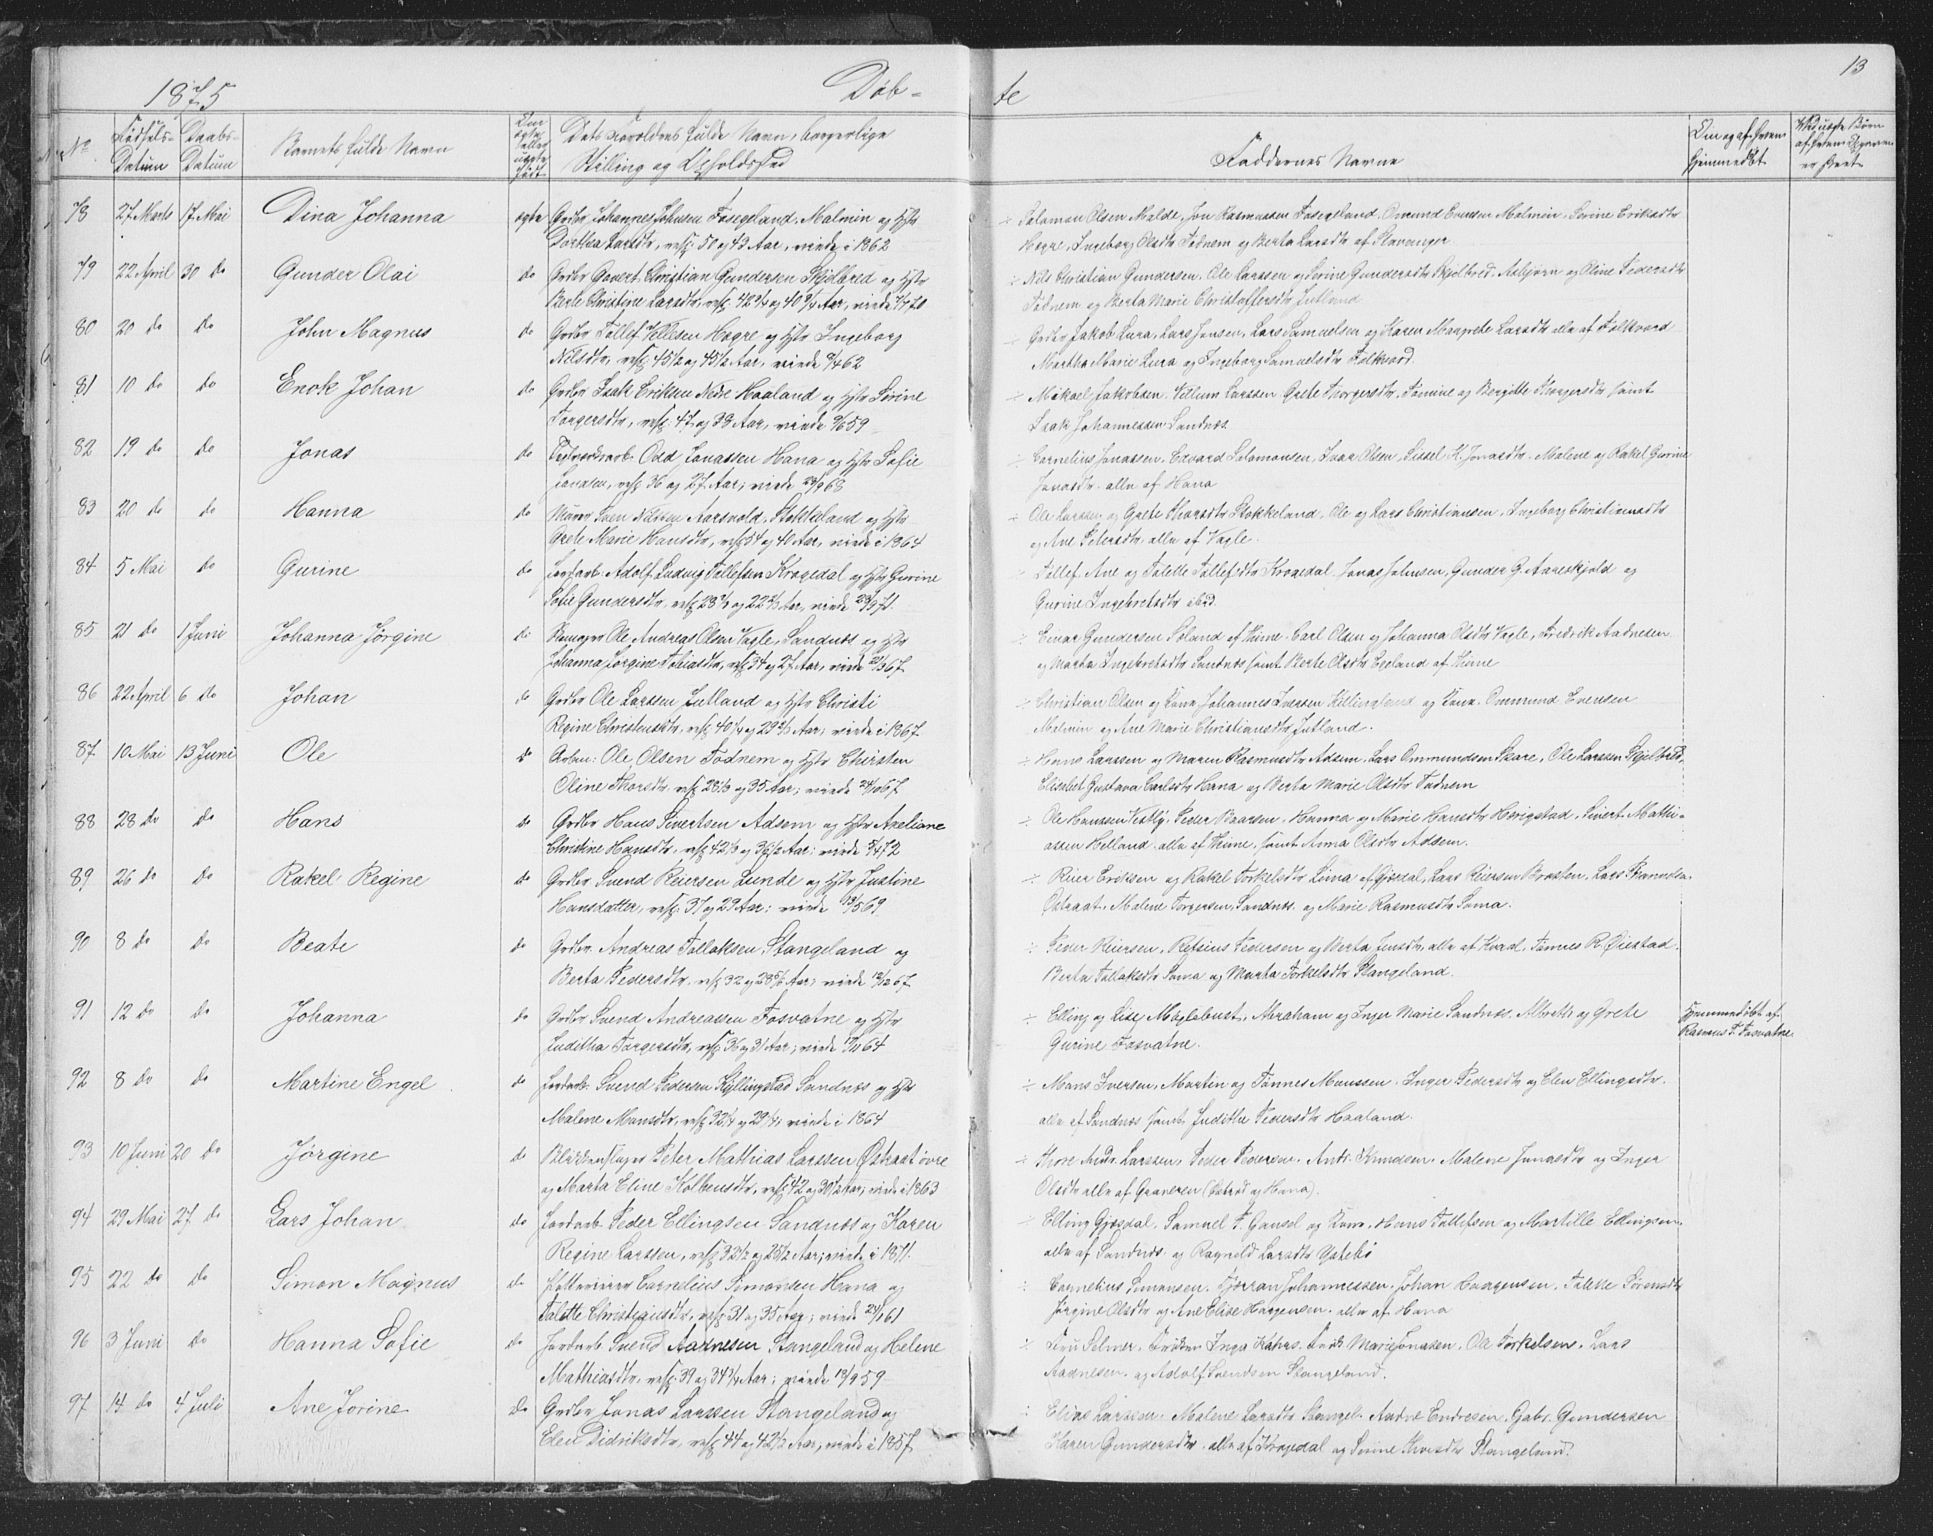 1875
Døb-
te
13
No
Fødsels-Datum
Daabs-Datum
Barnets fulde Navn
Om ægte eller uægte født
Dets Forældres fulde Navn, borgerlige
Stilling og Opholdssted
Faddernes Navne
Om og af hvem
hjemmedøbt
78 27 Marts 17 Mai Dina Johanna ægte Grdbr Johannes Johnsen Fosegeland, Malmin og Hstr
Dorthea Larsdtr, resp. 50 og 43 Aar, viede i 1862
÷ Salamon Olsen Malde, Jon Rasmussen Fosegeland, Omund Evensen Malmin, Serine Eriksdtr
Hogre, Ingeborg Olsdtr Fodnem og Berta Larsdtr af Stavanger
79 22 April 30 do Gunder Olai do Grdbr Govert Christian Gundersen Skjølbred og Hstr
Berte Christine Larsdtr,
÷ Nils Christian Gundersen, Ole Larssen og Serine Gundersdtr Skjølbred, Asbjørn og Oline Pedersdtr
Fodnem og Berta Marie Christoffersdtr Jutland
80 20 do do John Magnus do Grdbr Tollef Hogre og Hstr Ingeborg
Nilsdtr, resp. 45 1/2 og 45 1/2 Aar, viede
÷ Grdbr Jakob Lura, Lars Jensen, Lars Samuelsen og Karen Margrete Larsdtr alle af Folkvord
Martha Marie Lura og Ingeborg Samuelsdtr Folkvord
81 10 do do Enok Johan do Grdbr Isak Eriksen Nedre Haaland og Hstr Serine
Torgersdtr, resp. 47 og 38 Aar, viede
÷ Mikael Jakobsen, Villum Larssen Grete Torgersdtr, Tomine og Bergitte Torgersdtr samt
Isak Johannessen Sandnæs
82 19 do do Jonas do Odd Jonassen Hana og Hstr Sofie
Jonasen, resp. 36 og 27 Aar, viede
÷ Cornelius Jonassen, Edvard Salomonsen, Ivar Olsen, Sissel K. Jonasdtr, Malene og Rakel Gurine
Jonasdtr alle af Hana
83 20 do do Hanna do Murer Sven Nilssen Aarsvold, Stokkeland og Hstr
Grete Marie Hansdtr, resp. 54 og 40 Aar, viede i 1864
÷ Ole Larssen og Grete Thorsdtr Stokkeland, Ole og Lars Christiansen, Ingeborg Christiansdtr
og Ane Petersdtr alle af Vagle.
84 5 Mai do Gurine do Jordarb. Adolf Ludvig Tollefsen Krogedal og Hstr Gurine
Sofie Gundersdtr,
÷ Tollef, Ane og Talette Tollefsdtr Krogedal, Jonas Johnsen, Gunder G. Aareskjold og
Gurine Ingebretsdtr ibid.
85 21 do 1 Juni Johanna Jørgine do Ole Andreas Olsen Vagle, Sandnæs og Hstr
Johanna Jørgine Tobiasdtr, resp. 34 og 27 Aar, viede
÷ Einar Gundersen Soland af Hinne, Carl Olsen og Johanna Olsdtr Vagle, Fredrik Aadnesen
og Marta Ingebretsdtr Sandnæs samt Berte Olsdtr Egeland af Hinne
86 22 April 6 do Johan do Grdbr Ole Larssen Jutland og Hstr Christi
Regine Christensdtr, viede i 1867
÷ Christian Olsen og Kone, Johannes Iversen Killingland og Kone, Ommund Evensen
Malmin og Ane Marie Christiansdtr Jutland.
87 10 Mai 13 Juni Ole do Ole Olsen Fodnem og Hstr Chirsten
Oline Thorsdtr,
÷ Hans Larssen og Maren Rasmusdtr Adsem, Lars Ommundsen Skare, Ole Larssen Skjelbred,
Elisabet Gustava Carlsdtr Hana og Berta Marie Olsdtr Fodnem
88 28 do do Hans do Grdbr Hans Sivertsen Adsem og Hstr Axeliane
Christine Hansdtr,
÷ Ole Hanssen Vestly, Peder Baarsen, Hanna og Marie Hansdtr Hørigstad, Sivert Mathi-
assen Helland alle af Hinne, samt Anna Olsdtr Adsem.
89 26 do do Rakel Regine do Grdbr Svend Reiersen Lunde og Hstr Justine
Hansdatter, resp. 37 og 29 Aar; viede
÷ Reier Erikssen og Rakel Torkelsdtr Lima af Gjesdal, Lars Reiersen Braasten,
Østraat, Malene Torgersen, Sandnæs, og Marie Rasmusdtr Soma.
90 8 do do Beate do Grdbr Andreas Tollaksen Stangeland og
Berta Pedersdtr,
÷ Peder Reiersen, Retsius Pedersen og Berta Jensdtr, alle af Hvad, Tønnes R. Øiestad,
Berta Tollaksdtr Soma og Marta Torkelsdtr Stangeland.
91 12 do do Johanna do Grdbr Svend Andreassen Fosvatne og Hstr
Juditha Torgersdtr, resp. 36 og 31 Aar; viede
÷ Elling og Lise Møglebust, Abraham og Inger Marie Sandnæs, Albrette og Grete
Gurine Fosvatne.
Hjemmedøbt af
Rasmus T. Fosvatne.
92 8 do do Martine Engel do Jordarb. Svend Pedersen Kyllingstad Sandnæs og Hstr
Malene Monsdtr, viede i 1864
÷ Mons Iversen, Martin og Tønnes Monssen, Inger Pedersdtr og Elen Ellingsdtr.
alle af Sandnæs samt Juditha Pedersdtr Haaland.
93 10 Juni 20 do Jørgine do Blikkenslager Peter Mathias Larssen Østraat øvre
og Marta Eline Kolbensdtr, viede i 1863
÷ Thore Andr. Larssen, Peder Pedersen, Andr. Knudsen, Malene Jonasdtr og Inger
Olsdtr alle af Graveren (Østraat og Hana).
94 29 Mai 27 do Lars Johan do Jordarb. Peder Ellingsen Sandnæs og Karen
Regine Larssen, resp. 32 1/2 og 25 1/2 Aar; viede i 1871.
÷ Elling Gjesdal, Samuel T. Gausel og Kone, Hans Tollefsen og Martille Ellingsen
alle af Sandnæs og Ragnild Larsdtr
95 22 do do Simon Magnus do Cornelius Simonsen Hana og
Talette Christensdtr, resp. 31 og 35 Aar; viede
÷ Cornelius Simonsen, Johannessen, Johan Haagensen, Talette Sørensdtr
Jørgine Olsdtr og Ane Elise Haagensen alle af Hana
96 3 Juni do Hanna Sofie do Jordarb. Svend Aadnesen Stangeland og Helene
Mathiasdtr,
÷ Fru Selmer, Frøken Inga Marie Jonasen, Ole Torkelsen, Lars
Aadnesen og Adolf Svendsen Stangeland.
97 14 do 4 Juli Ane Jorine do Grdbr Jonas Larssen Stangeland og
Elen Didriksdtr, resp. 44 og 42 1/2 Aar, viede i 1857
÷ Elias Larssen, Malene Larsdtr Stangel. Andre Endresen, Gabr. Gundersen
Karen Gundersdtr alle af Krogedal og Serine Thorsdtr Stangeland.